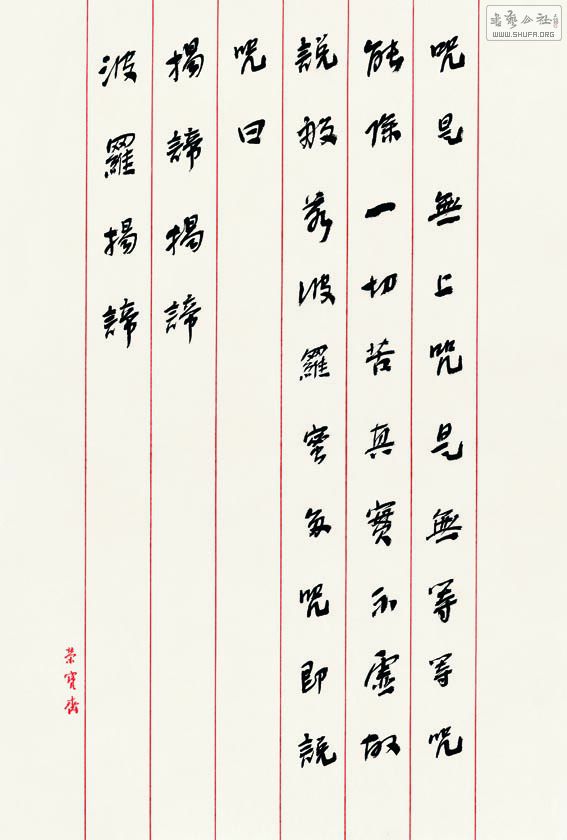 咒是無上咒是無等等咒
能除一切苦真實不虛故
說般若波羅蜜多咒即說
咒曰
揭諦揭諦
波羅揭諦
榮寶齋
書藝公社
WWW.SHUFA.ORG